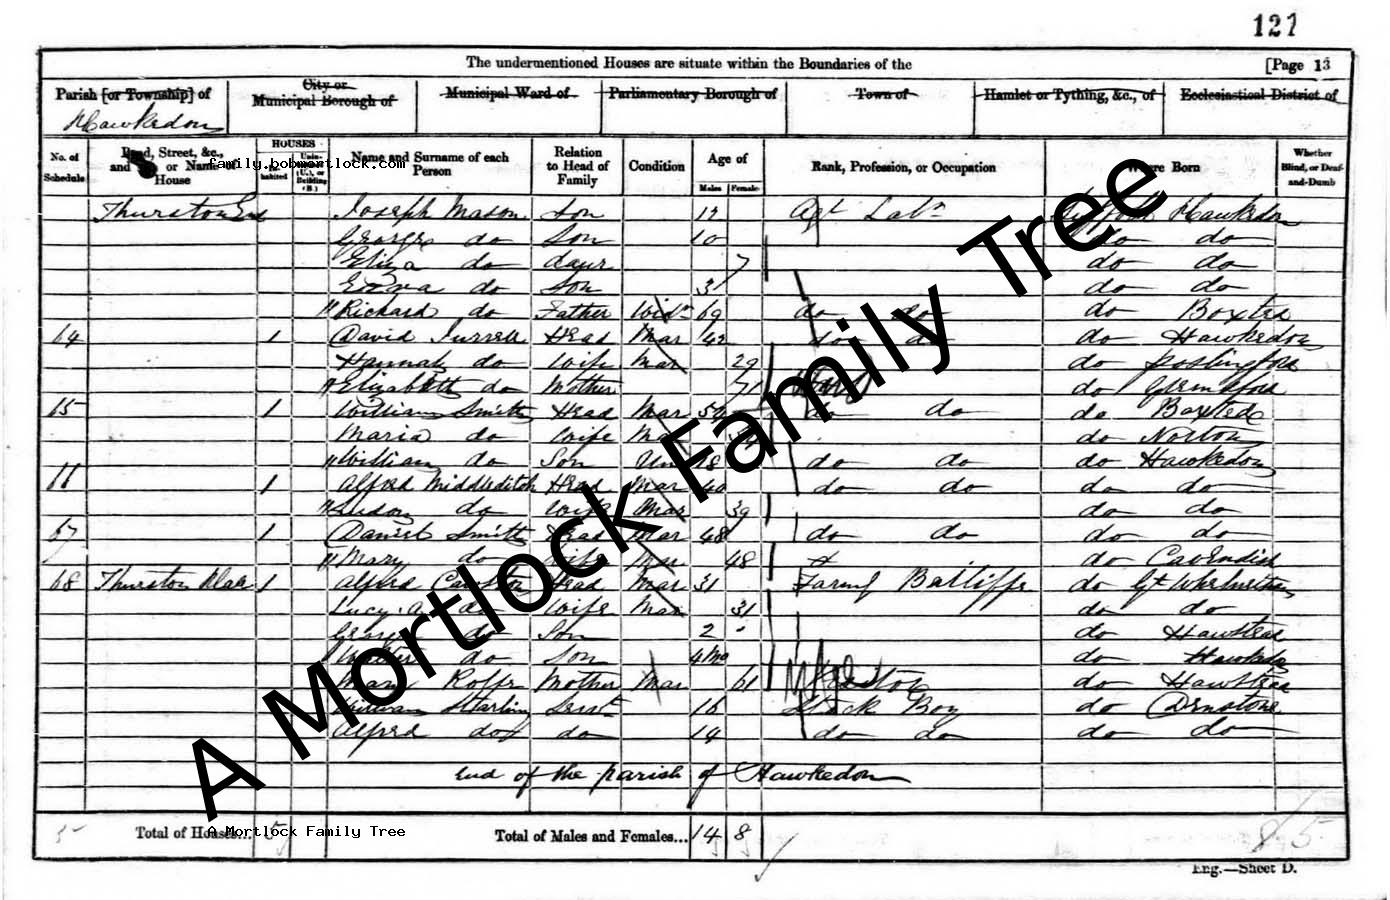 127
The undermentioned Houses are situate within the Boundaries of the [Page 13
Parish [or Township] of City or Municipal Borough of Municipal Ward of Parliamentary Borough of Town of Hamlet or Tything, &c., of Ecclesiastical District of
Hawkedon
No. of Schedule Road, Street, &c., and No. or Name of House HOUSES Inhabited Uninhabited (U.), or Building (B.) Name and Surname of each Person Relation to Head of Family Condition Age of Males Females Rank, Profession, or Occupation Where Born Whether Blind, or Deaf-and-Dumb
family.bobmortlock.com
Thurston End Joseph Mason Son 12 Agl Labr Suffolk Hawkedon
George do Son 10 do do
Eliza do daur 7 do do
do Son 3 do do
Richard do Father Widr 69 do do do Boxted
64 1 David Turrell Head Mar 42 do do do Hawkedon
Hannah do Wife Mar 29 do Poslingford
Elizabeth do Mother 71 do
65 1 William Smith Head Mar 52 do do Boxted
Maria do Wife do Norton
William do Son Un 18 do do do Hawkedon
66 1 Alfred Middleditch Head Mar 40 do do do do
Susan do Wife Mar 39 do do
67 1 Daniel Smith Head Mar 48 do do do do
Mary do Wife Mar 48 do Cavendish
68 Thurston 1 Alfred Head Mar 31 Farm Bailiff do Gt
Lucy A do Wife Mar 31 do do
George do Son 2 do Hawstead
Walter do Son 4 Mo do Hawkedon
Mary Mother Mar 61 do Hawstead
William Starling Servt 16 Stock Boy do Denstone
Alfred do do 14 do do do do
End of the parish of Hawkedon
Total of Houses... 5 Total of Males and Females... 14 8
A Mortlock Family Tree
Eng.—Sheet D.
A Mortlock Family Tree